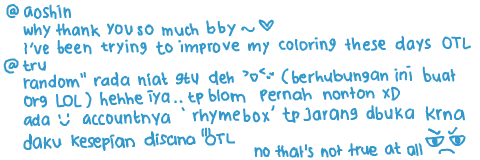 @ aoshin
why thank you so much bby ~ ♡
I've been trying to improve my coloring these days OTL
@ tru
random" rada niat gtu deh (berhubungan ini buat
org LOL) hehhe iya.. tp blom pernah nonton xD
ada :) accountnya `rhymebox´ tp jarang dbuka krna
daku kesepian disana OTL
no that's not true at all